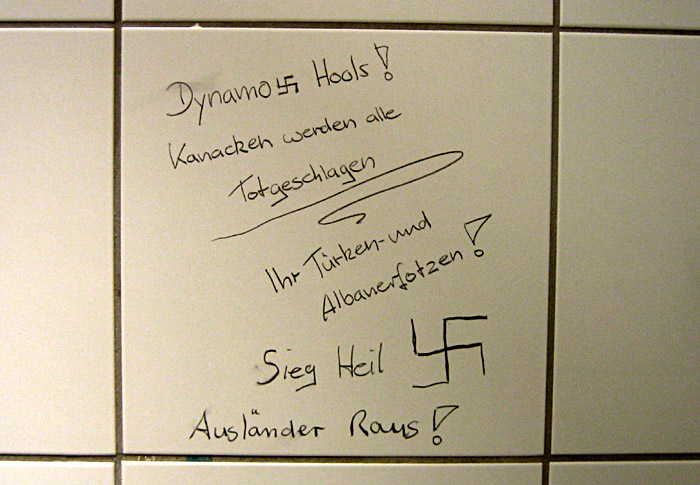 Dynamo 卐 Hools!
Kanacken werden alle
Totgeschlagen
Ihr Türken- und
Albanerfotzen!
Sieg Heil 卐
Ausländer Raus!